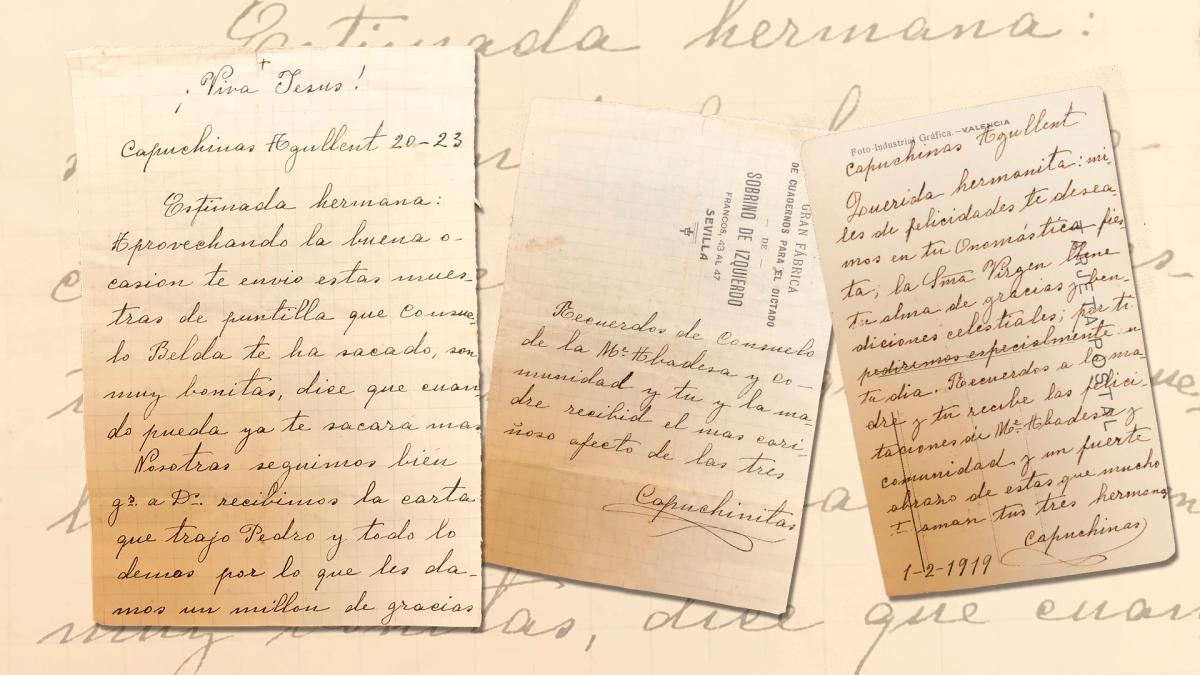 Estimada hermana:
¡Viva Jesus!
Capuchinas Agullent 20-23
Estimada hermana:
Aprovechando la buena o-
casion te envio estas mues-
tras de puntilla que Consue-
lo Belda te ha sacado, son
muy bonitas, dice que cuan
do pueda ya te sacará mas
Nosotras seguimos bién
gr. a Ds. recibimos la carta
que trajo Pedro y todo lo
demas por lo que les da-
mos un millon de gracias
GRAN FÁBRICA
DE CUADERNOS PARA EL DICTADO
— DE —
SOBRINO DE IZQUIERDO
FRANCOS, 43 AL 47
SEVILLA
Recuerdos de Consuelo
de la Me. Abadesa y co-
munidad y tu y la ma-
dre recibid el mas cari-
ñoso afecto de las tres
Capuchinitas
Foto-Industrial Gráfica.-VALENCIA
Capuchinas Agullent
Querida hermanita: mi-
les de felicidades te desea-
mos en tu Onomástica fies
ta; la Sma Virgen llene
tu alma de gracias y ben-
diciones celestiales; por ti
pediremos especialmente en
tu dia. Recuerdos a la ma-
dre y tu recibe las felici-
taciones de Me. Abadesa y
comunidad y un fuerte
abrazo de estas que mucho
te aman tus tres hermanas
Capuchinas
1-2-1919
TARJETA POSTAL
muy bonitas, dice que cuan